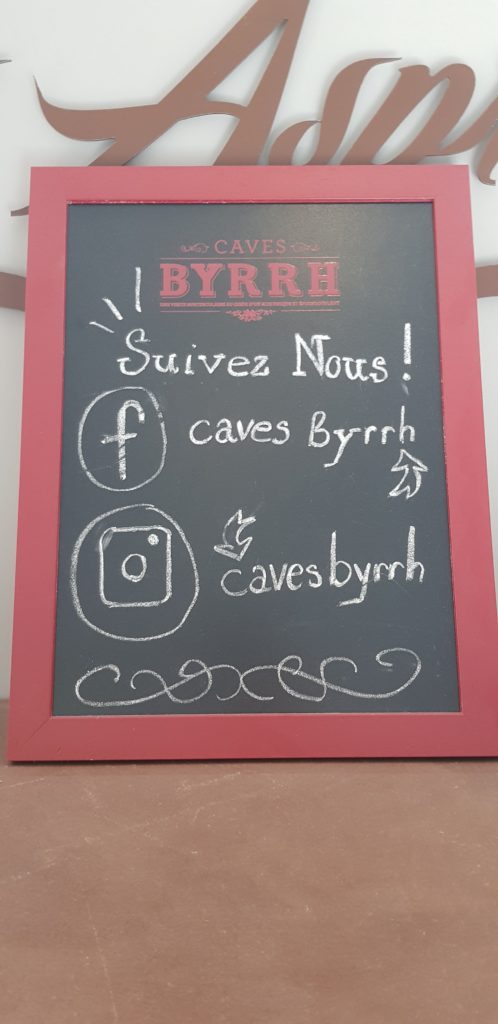 Asp
CAVES
BYRRH
Suivez Nous !
f caves Byrrh
cavesbyrrh